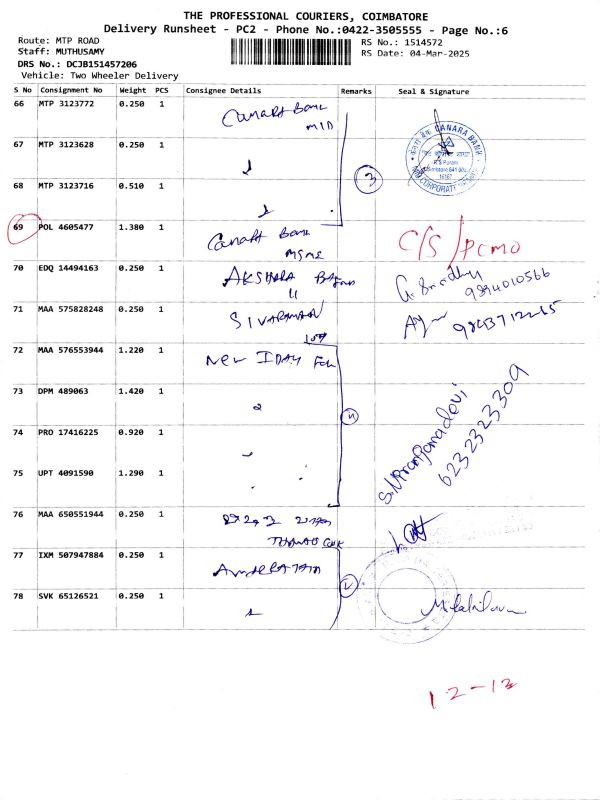 THE PROFESSIONAL COURIERS, COIMBATORE
Delivery Runsheet - PC2 - Phone No.:0422-3505555 - Page No.:6
Route: MTP ROAD
RS No.: 1514572
Staff: MUTHUSAMY
RS Date: 04-Mar-2025
DRS No.: DCJB151457206
Vehicle: Two Wheeler Delivery
S No Consignment No Weight PCS Consignee Details Remarks Seal & Signature
66 MTP 3123772 0.250 1 Canara Bank
MID
CANARA BANK
67 MTP 3123628 0.250 1
3
68 MTP 3123716 0.510 1
69 POL 4605477 1.380 1 Canara Bank
MSME
C/S/PCMO
70 EDQ 14494163 0.250 1 AKSHARA
9894010566
71 MAA 575828248 0.250 1 SIVARAMAN
72 MAA 576553944 1.220 1 New IDAY
73 DPM 489063 1.420 1
S. Niranjana devi
6232323309
74 PRO 17416225 0.920 1
75 UPT 4091590 1.290 1
76 MAA 650551944 0.250 1
77 IXM 507947884 0.250 1
78 SVK 65126521 0.250 1
12-13